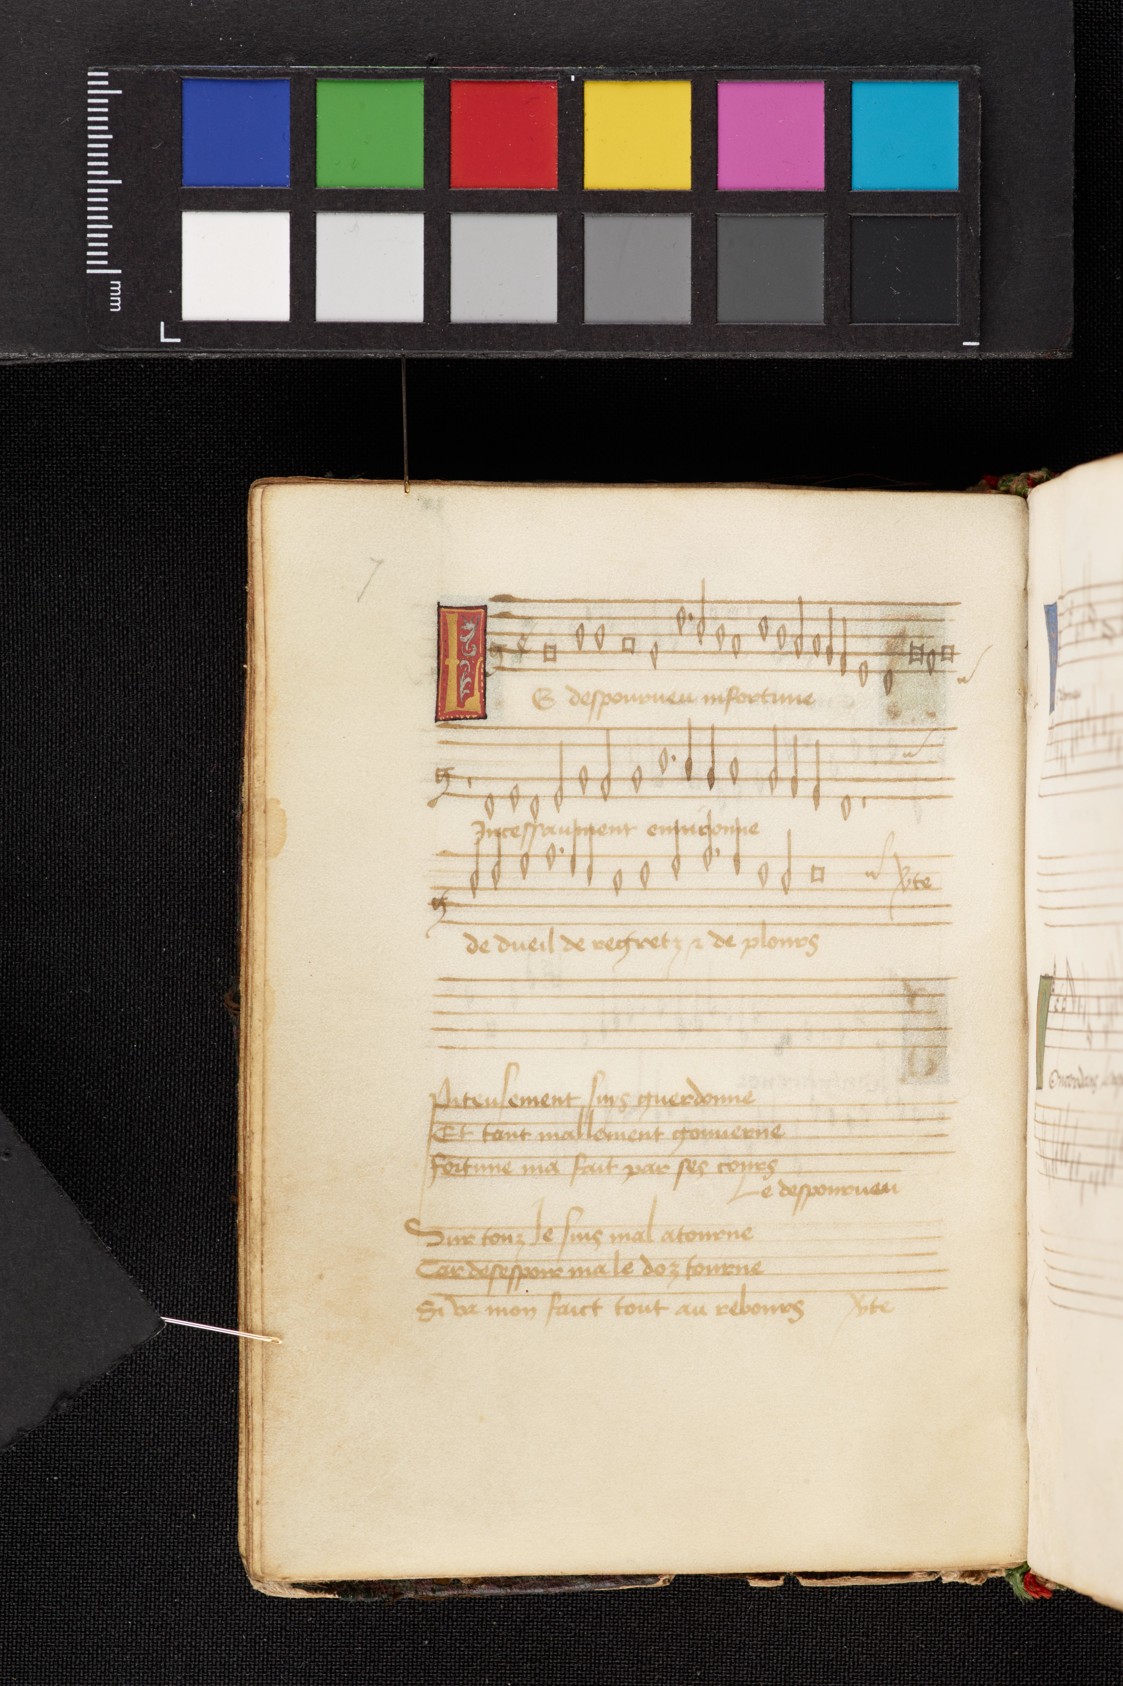 mm
7
LE despourueu infortune
Incessaument enuironne
de dueil de regretz & de plours
Vte
Piteusement suis guerdonne
Et tant mallement gouuerne
fortune ma fait par ses cours
Le despourueu
Sur touz Je suis mal atourne
Car desespoir ma le doz tourne
Si va mon faict tout au rebours Vte